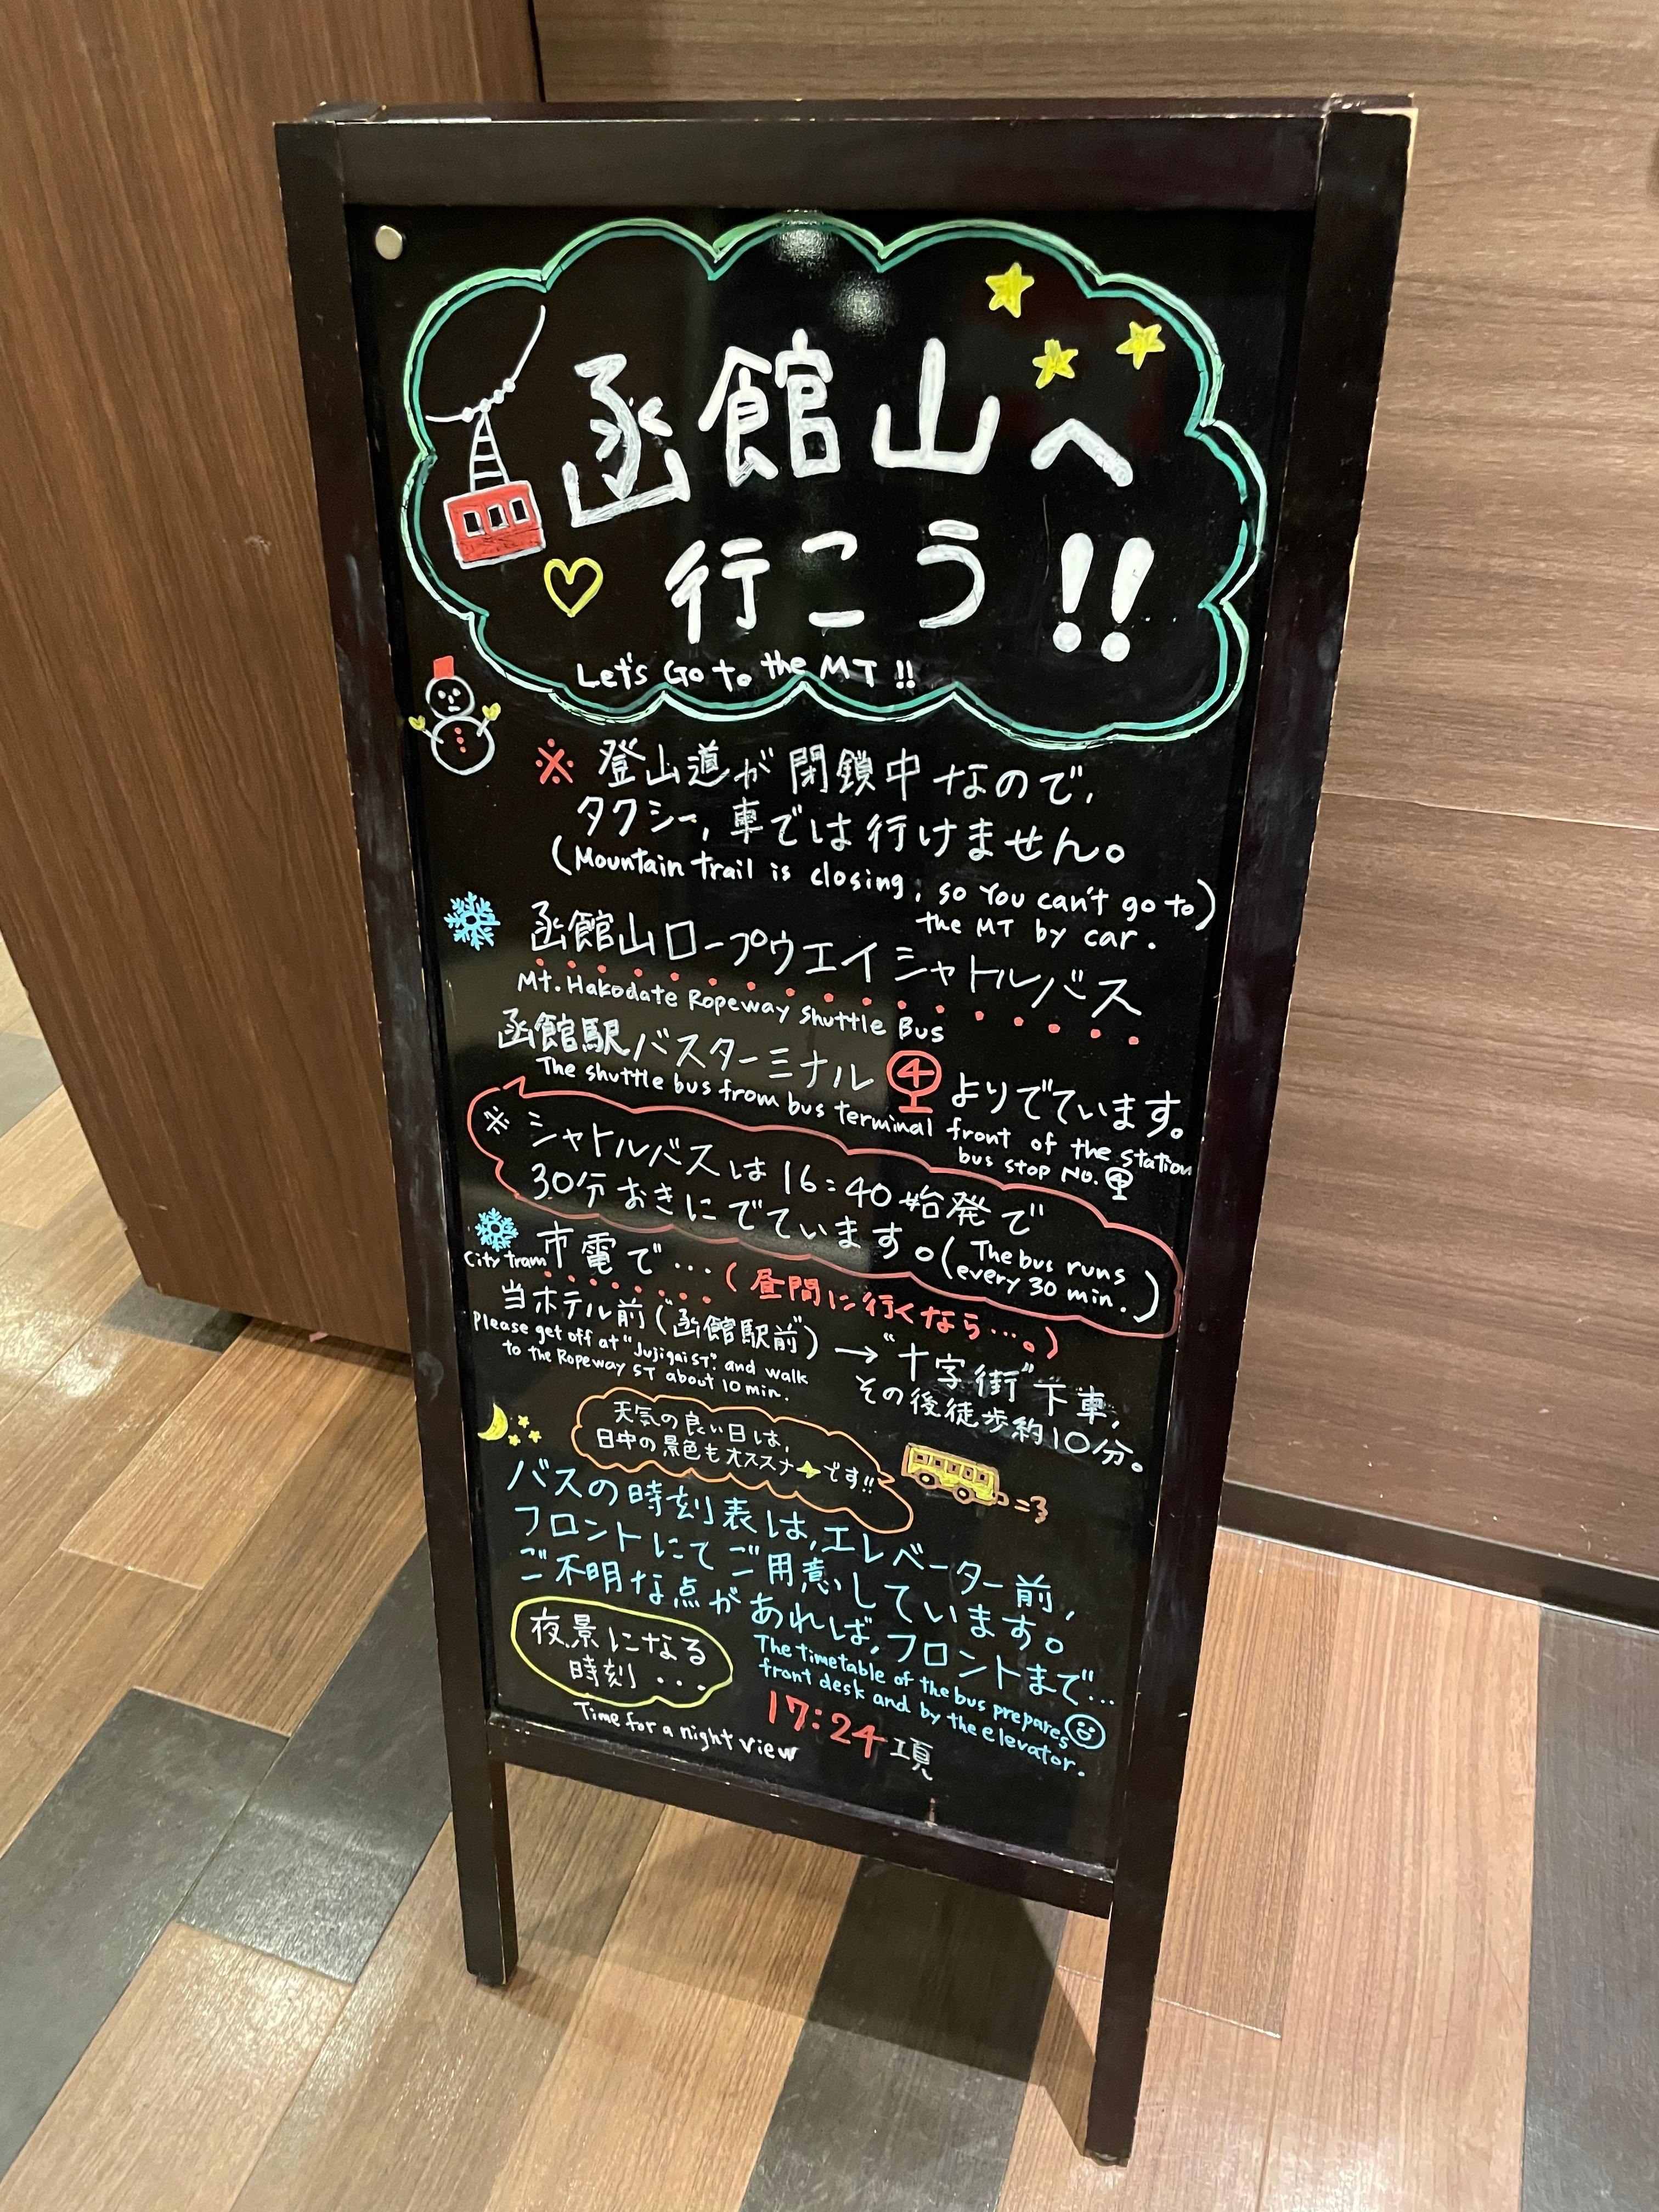 函館山へ
行こう!!
Let's Go to the MT !!
※ 登山道が閉鎖中なので、
タクシー、車では行けません。
(Mountain trail is closing, so You can't go to
the MT by car.)
函館山ロープウエイシャトルバス
Mt. Hakodate Ropeway Shuttle Bus
函館駅バスターミナル④よりでています。
The shuttle bus from bus terminal front of the station
bus stop No.④
※ シャトルバスは16:40始発で
30分おきにでています。(The bus runs
every 30 min.)
City tram 市電で…(昼間に行くなら…。)
当ホテル前("函館駅前")→"十字街"下車、
その後徒歩約10分。
Please get off at "Jujigai ST". and walk
to the Ropeway ST about 10 min.
天気の良い日は、
日中の景色もオススメです!!
バスの時刻表は、エレベーター前、
フロントにてご用意しています。
ご不明な点があれば、フロントまで…
The timetable of the bus prepares
front desk and by the elevator.
夜景になる
時刻...
Time for a night view
17:24頃